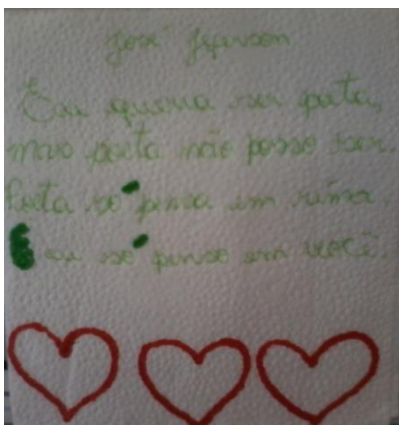 José
Eu queria ser poeta,
mas poeta não posso ser.
Poeta só pensa em rima
E eu só penso em você.